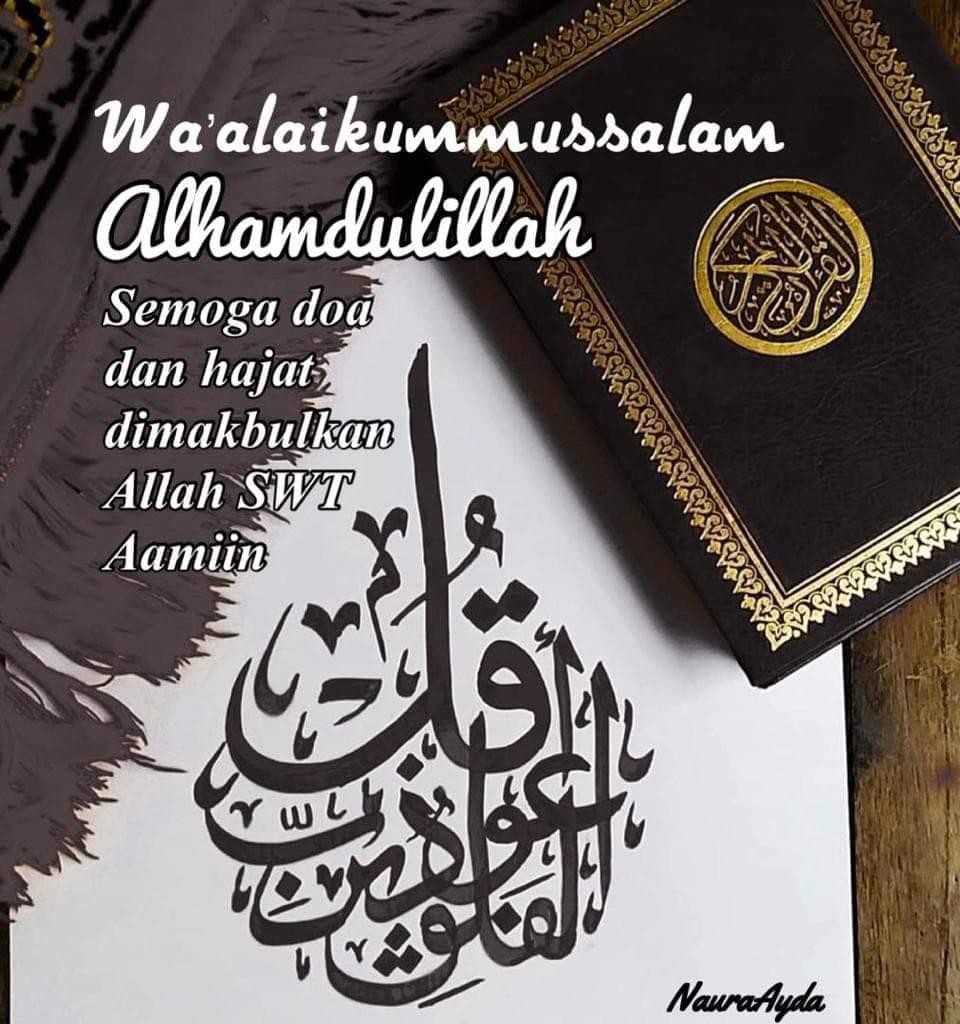 Wa'alaikummussalam
Alhamdulillah
Semoga doa
dan hajat
dimakbulkan
Allah SWT
Aamiin
القرآن الكريم
قُلْ أَعُوذُ بِرَبِّ الْفَلَقِ
NauraAyda